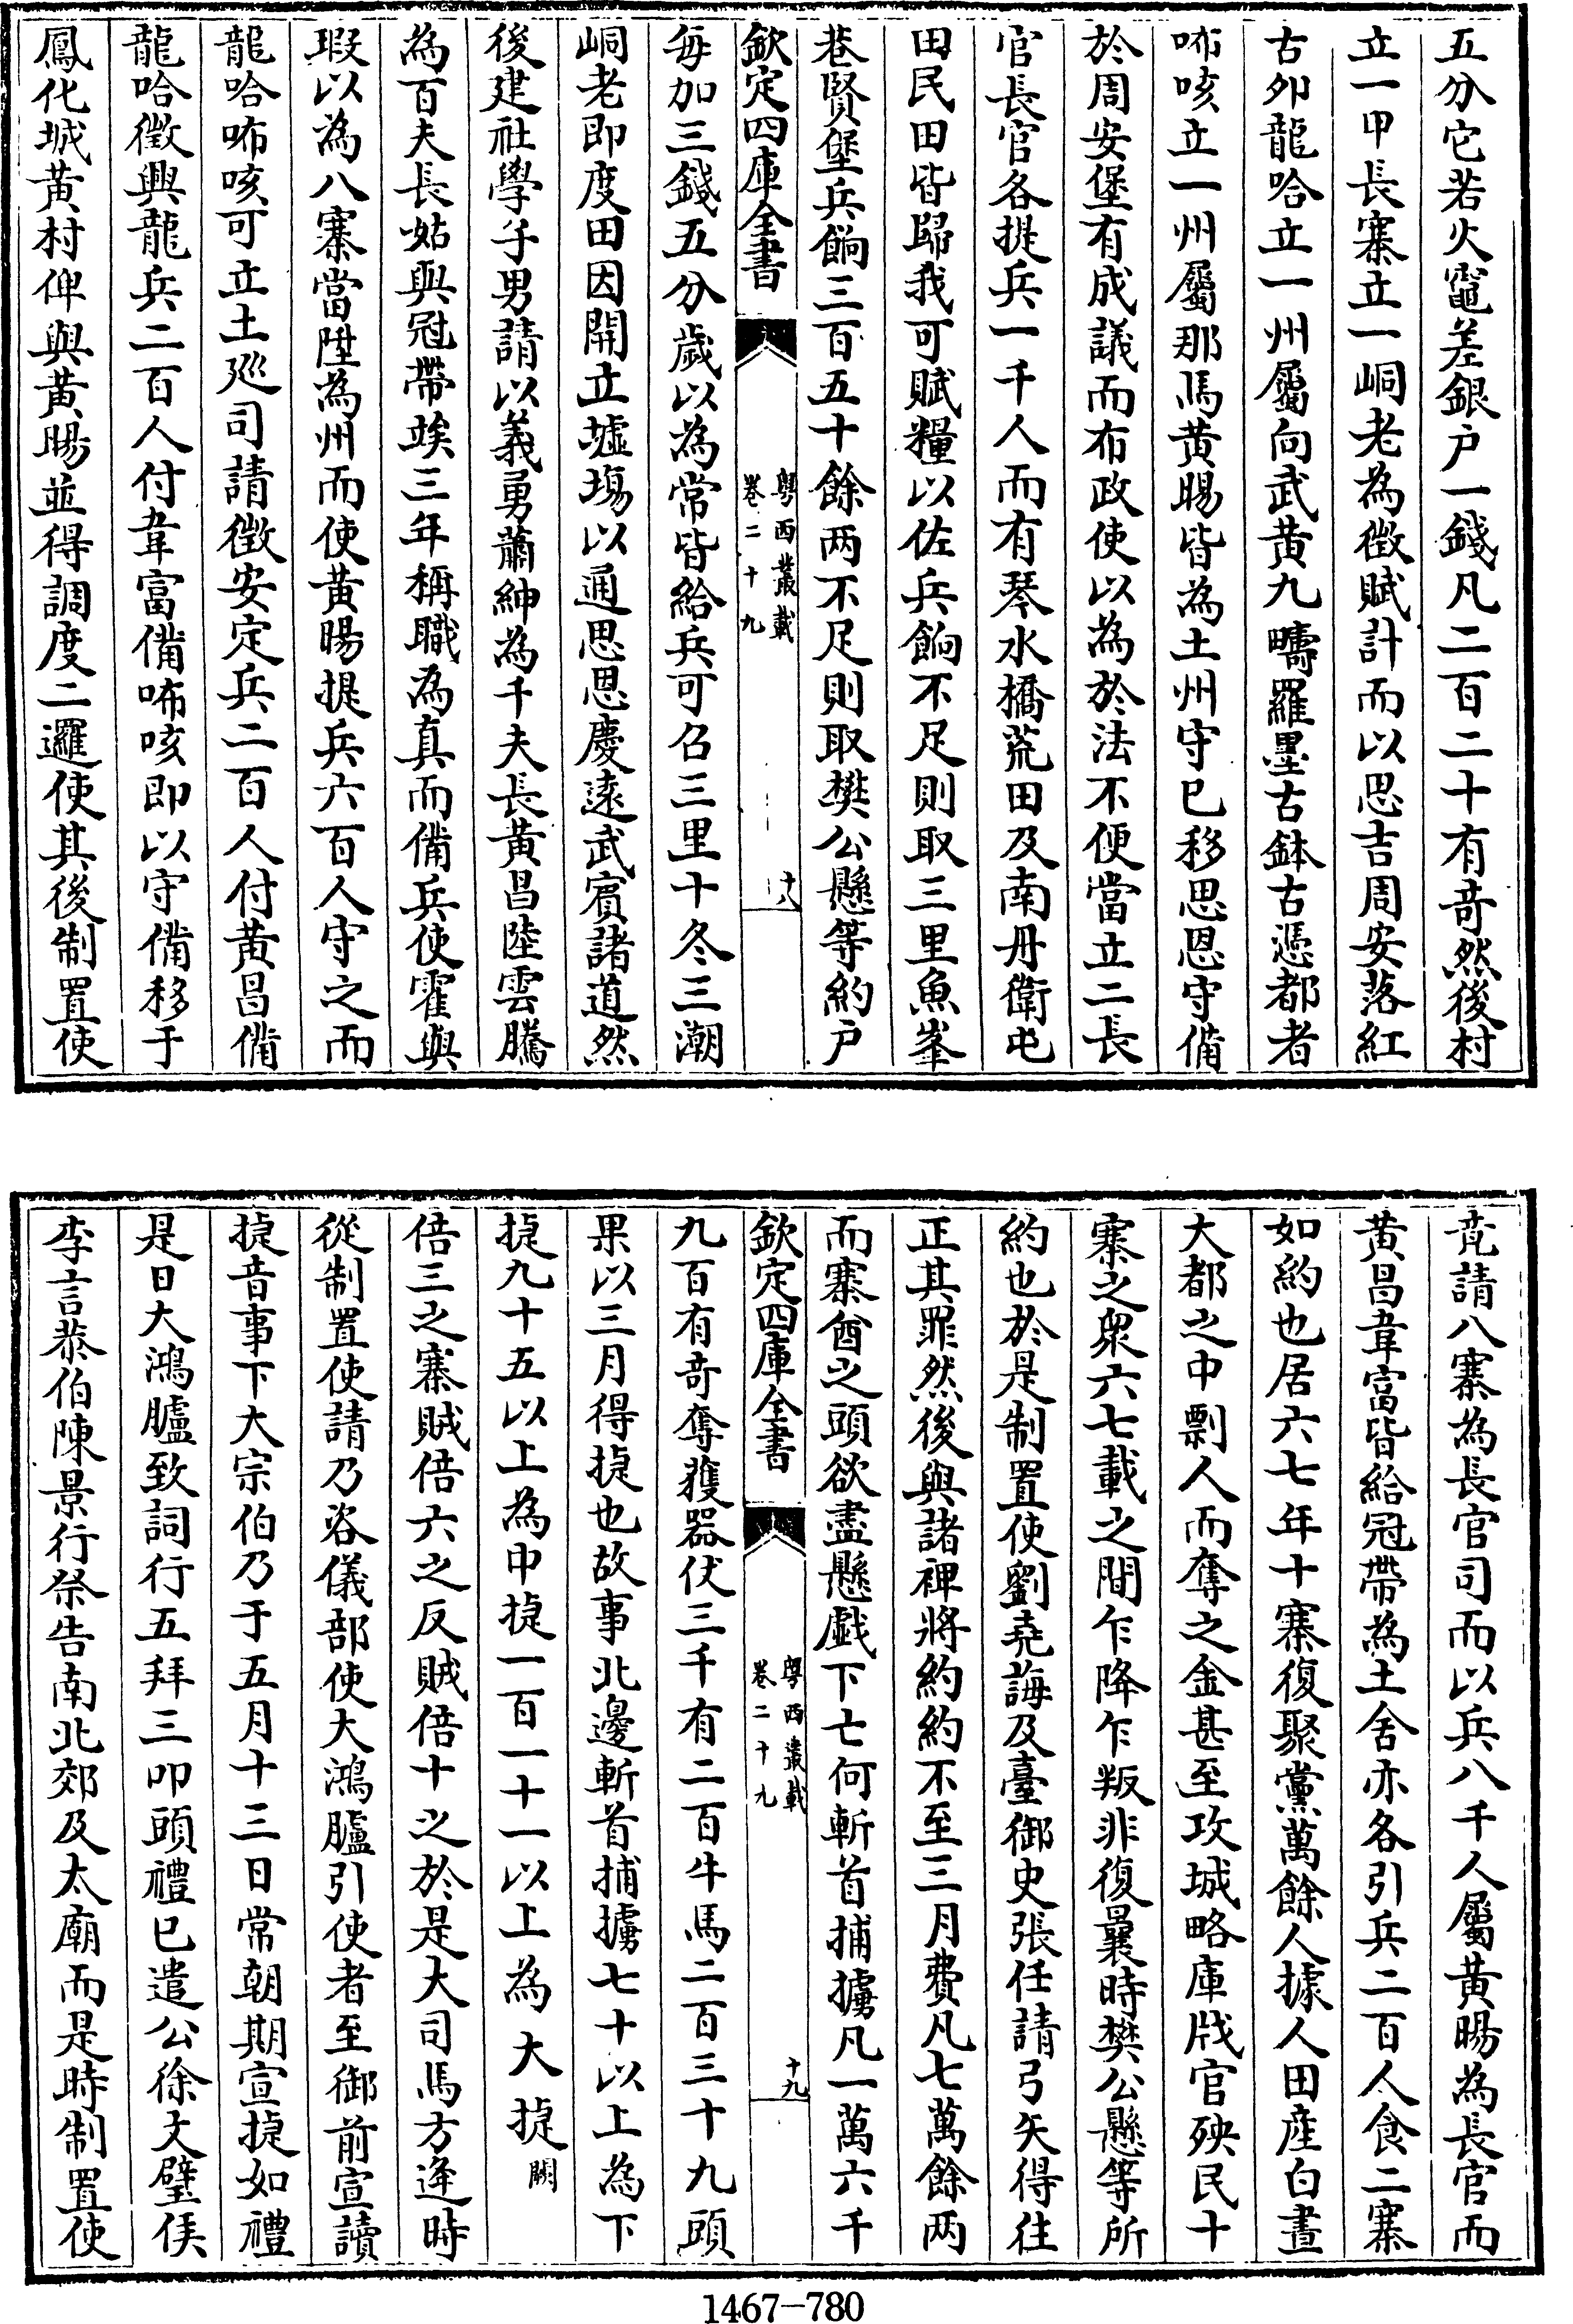 五分它若火窰差銀戶一錢凡二百二十有奇然後村
立一甲長寨立一峒老為徵賦計而以思吉周安落紅
古卯龍哈立一州屬向武黄九疇羅墨古鉢古憑都者
咘咳立一州屬那馬黄暘皆為土州守已移思恩守備
於周安堡有成議而布政使以為於法不便當立二長
官長官各提兵一千人而有琴水橋荒田及南丹衛屯
田民田皆歸我可賦糧以佐兵餉不足則取三里魚峯
巷賢堡兵餉三百五十餘两不足則取樊公懸等約戶
欽定四庫全書
粤西叢載
卷二十九
十八
每加三錢五分歲以為常皆給兵可召三里十冬三潮
峒老即度田因開立墟塲以通思恩慶遠武賓諸道然
後建社學予男請以義勇蕭紳為千夫長黄昌陸雲騰
為百夫長姑與冠帶竢三年稱職為真而備兵使霍與
瑕以為八寨當陞為州而使黄暘提兵六百人守之而
龍哈咘咳可立土廵司請徵安定兵二百人付黄昌備
龍哈徵興龍兵二百人付韋富備咘咳即以守備移于
鳳化城黄村俾與黄暘並得調度二邏使其後制置使
堯請八寨為長官司而以兵八千人屬黄暘為長官而
黄昌韋富皆給冠帶為土舍亦各引兵二百人食二寨
如約也居六七年十寨復聚黨萬餘人據人田産白晝
大都之中剽人而奪之金甚至攻城略庫戕官殃民十
寨之衆六七載之間乍降乍叛非復曩時樊公懸等所
約也於是制置使劉堯誨及臺御史張任請弓矢得往
正其罪然後與諸裨將約約不至三月費凡七萬餘两
而寨酋之頭欲盡懸戯下亡何斬首捕擄凡一萬六千
欽定四庫全書
粤西叢載
卷二十九
十九
九百有奇奪獲器仗三千有二百牛馬二百三十九頭
果以三月得捷也故事北邊斬首捕擄七十以上為下
捷九十五以上為中捷一百一十一以上為大捷闕
倍三之寨賊倍六之反賊倍十之於是大司馬方逢時
從制置使請乃咨儀部使大鴻臚引使者至御前宣讀
捷音事下大宗伯乃于五月十三日常朝期宣捷如禮
是日大鴻臚致詞行五拜三叩頭禮已遣公徐文璧侯
李言恭伯陳景行祭告南北郊及太廟而是時制置使
1467-780